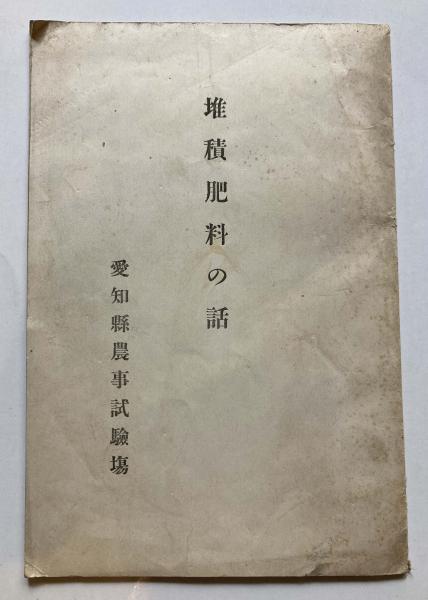 堆積肥料の話
愛知縣農事試驗塲